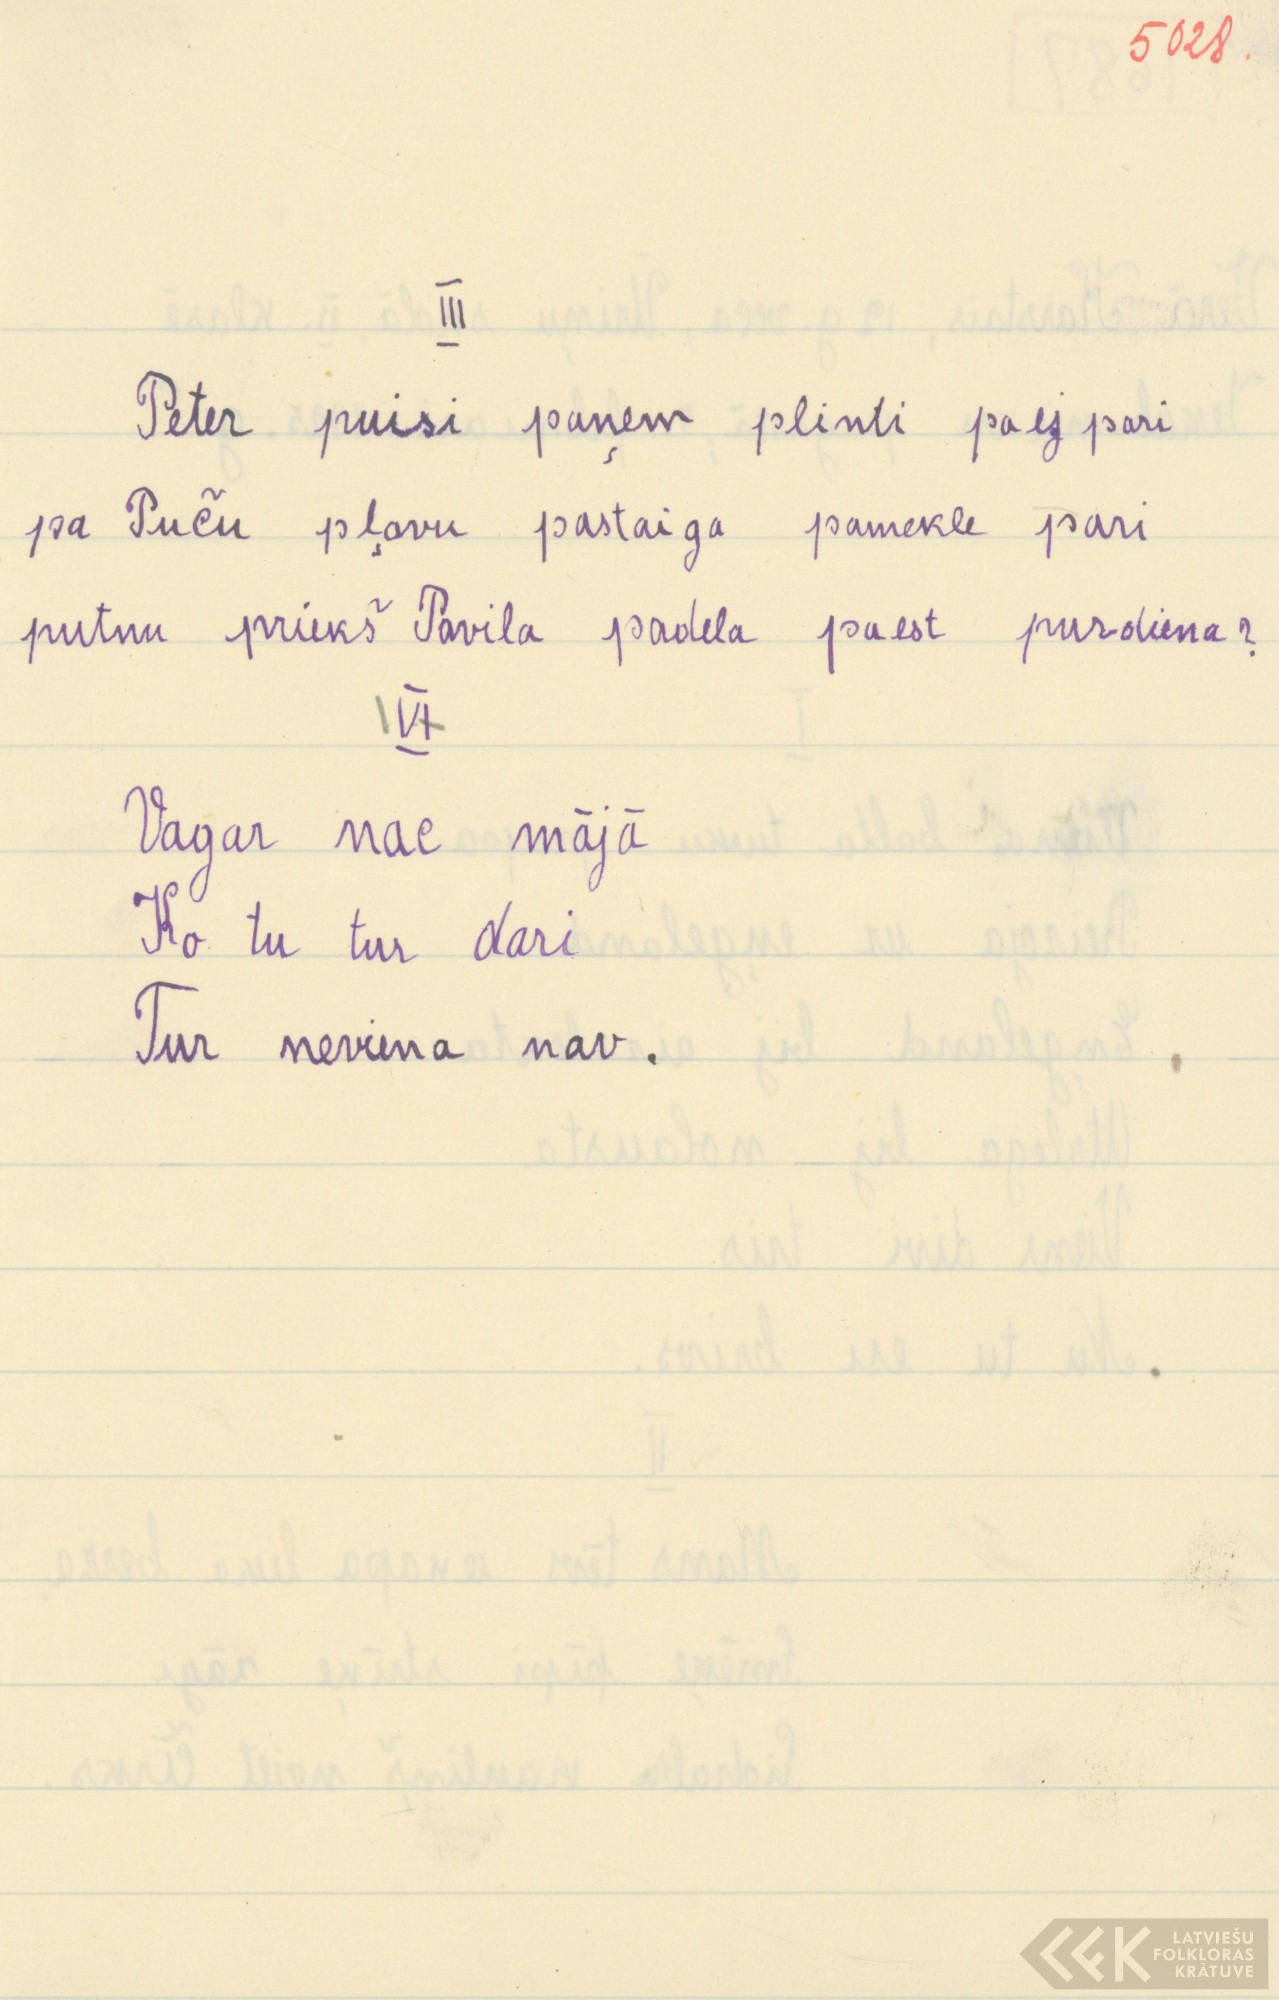 5028.
III
Peter puisi paņem plinti paej pari
pa Puču pļavu pastaiga pamekle pari
putnu priekš Pavila padela paest purdiena?
VI
Vagar nac mājā
Ko tu tur dari
Tur neviena nav.
LATVIEŠU
FOLKLORAS
KRĀTUVE